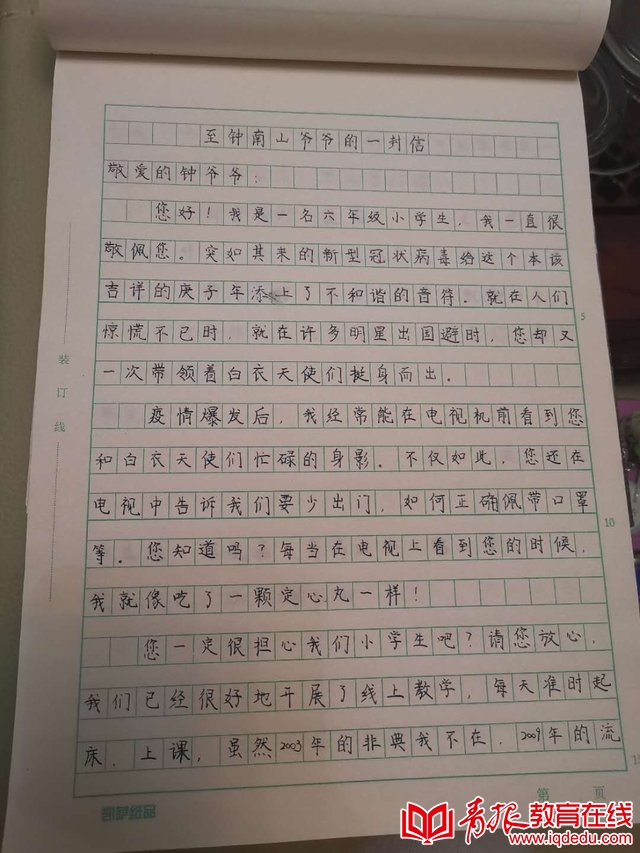 至钟南山爷爷的一封信
敬爱的钟爷爷：
您好！我是一名六年级小学生，我一直很
敬佩您。突如其来的新型冠状病毒给这个本该
吉详的庚子年添上了不和谐的音符。就在人们
惊慌不已时，就在许多明星出国避时，您却又
一次带领着白衣天使们挺身而出。
疫情爆发后，我经常能在电视机前看到您
和白衣天使们忙碌的身影。不仅如此，您还在
电视中告诉我们要少出门，如何正确佩带口罩
等。您知道吗？每当在电视上看到您的时候，
我就像吃了一颗定心丸一样！
您一定很担心我们小学生吧？请您放心，
我们已经很好地开展了线上教学，每天准时起
床、上课，虽然2003年的非典我不在，2009年的流
装订线
5
10
凯萨纸品
第 页
青报教育在线
www.iqdedu.com